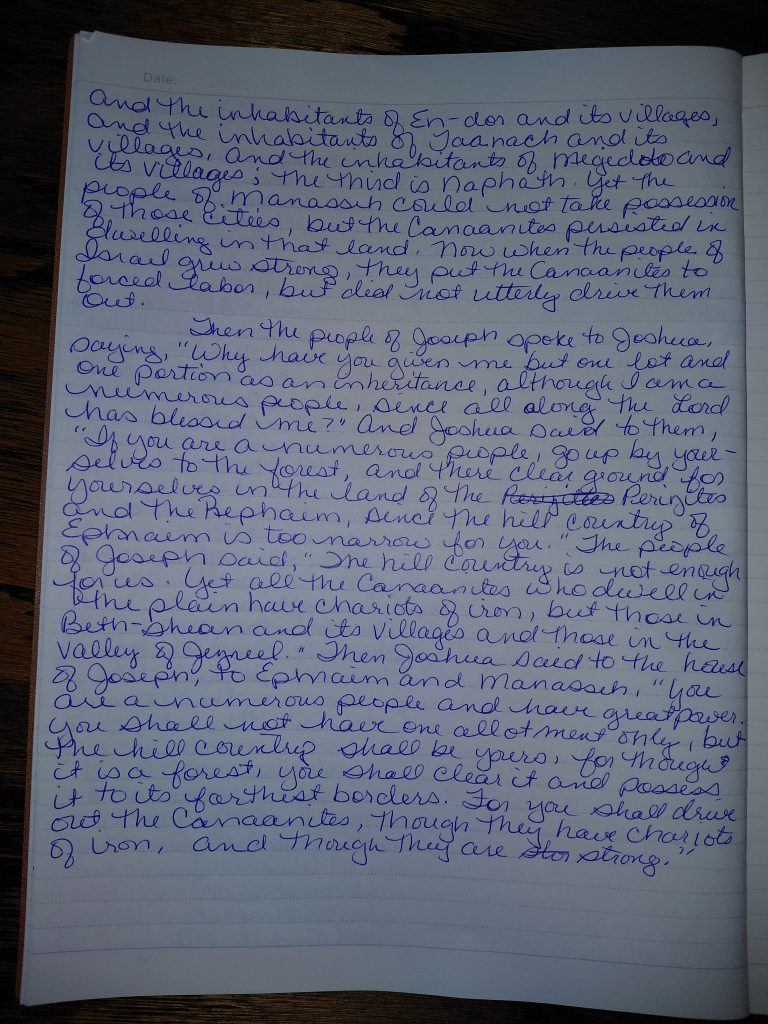 Date:
and the inhabitants of En-dor and its villages,
and the inhabitants of Taanach and its
villages, and the inhabitants of Megeddo and
its villages; the third is Naphath. Yet the
people of Manasseh could not take possession
of those cities, but the Canaanites persisted in
dwelling in that land. Now when the people of
Israel grew strong, they put the Canaanites to
forced labor, but did not utterly drive them
out.
Then the people of Joseph spoke to Joshua,
saying, "Why have you given me but one lot and
one portion as an inheritance, although I am a
numerous people, since all along the Lord
has blessed me?" And Joshua said to them,
"If you are a numerous people, go up by your-
selves to the forest, and there clear ground for
yourselves in the land of the Perizites
and the Rephaim, since the hill country of
Ephraim is too narrow for you." The people
of Joseph said, "The hill country is not enough
for us. Yet all the Canaanites who dwell in
the plain have chariots of iron, but those in
Beth-Shean and its villages and those in the
Valley of Jezreel." Then Joshua said to the house
of Joseph, to Ephraim and Manasseh, "You
are a numerous people and have great power.
You shall not have one allotment only, but
the hill country shall be yours, for thought
it is a forest, you shall clear it and possess
it to its farthest borders. For you shall drive
out the Canaanites, though they have chariots
of iron, and though they are strong."